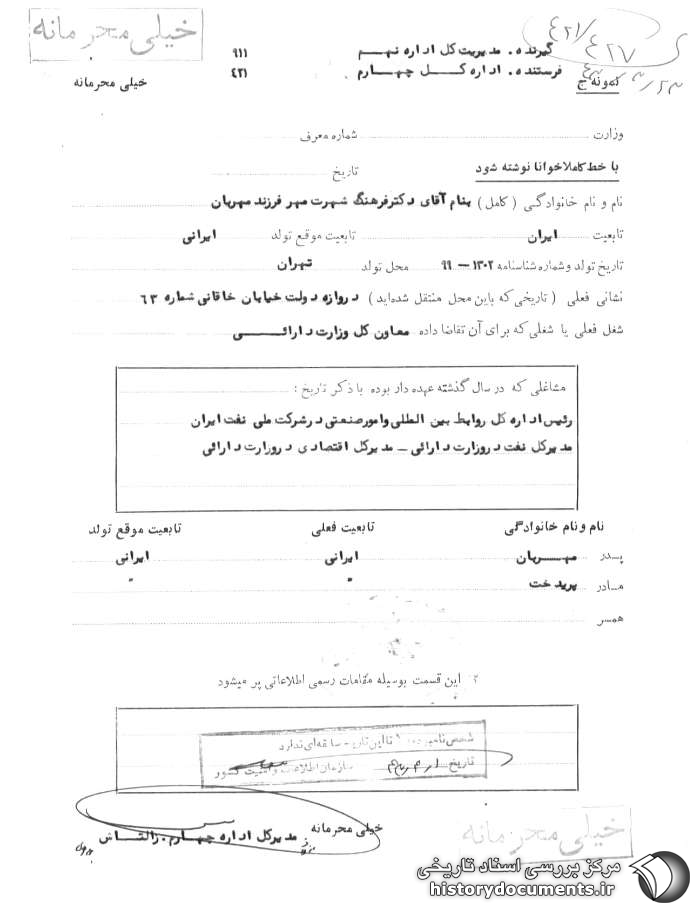 خیلی محرمانه
۴۲۱/۴۲۷
گیرنده . مدیریت کل اداره نهم ۹۱۱
فرستنده . اداره کل چهارم ۴۲۱
نمونه ج
خیلی محرمانه
وزارت شماره معرف
با خط کاملا خوانا نوشته شود
تاریخ
نام و نام خانوادگی ( کامل ) بنام آقای دکتر فرهنگ شهرت مهر فرزند مهربان
تابعیت ایران تابعیت موقع تولد ایرانی
تاریخ تولد و شماره شناسنامه ۱۳۰۲ – ۹۹ محل تولد تهران
نشانی فعلی ( تاریخی که باین محل منتقل شده‌اید ) دروازه دولت خیابان خاقانی شماره ۶۳
شغل فعلی یا شغلی که برای آن تقاضا داده معاون کل وزارت دارائی
مشاغلی که در سال گذشته عهده دار بوده با ذکر تاریخ :
رئیس اداره کل روابط بین المللی و امور صنعتی در شرکت ملی نفت ایران
مدیرکل نفت در وزارت دارائی – مدیرکل اقتصادی در وزارت دارائی
نام و نام خانوادگی تابعیت فعلی تابعیت موقع تولد
پدر مهربان ایرانی ایرانی
مادر پریدخت " "
همسر
۲ این قسمت بوسیله مقامات رسمی اطلاعاتی پر میشود
شخص نامبرده تا این تاریخ سابقه‌ای ندارد
تاریخ
سازمان اطلاعات و امنیت کشور
خیلی محرمانه
مدیرکل اداره چهارم . زالتاش
خیلی محرمانه
مرکز بررسی اسناد تاریخی
historydocuments.ir